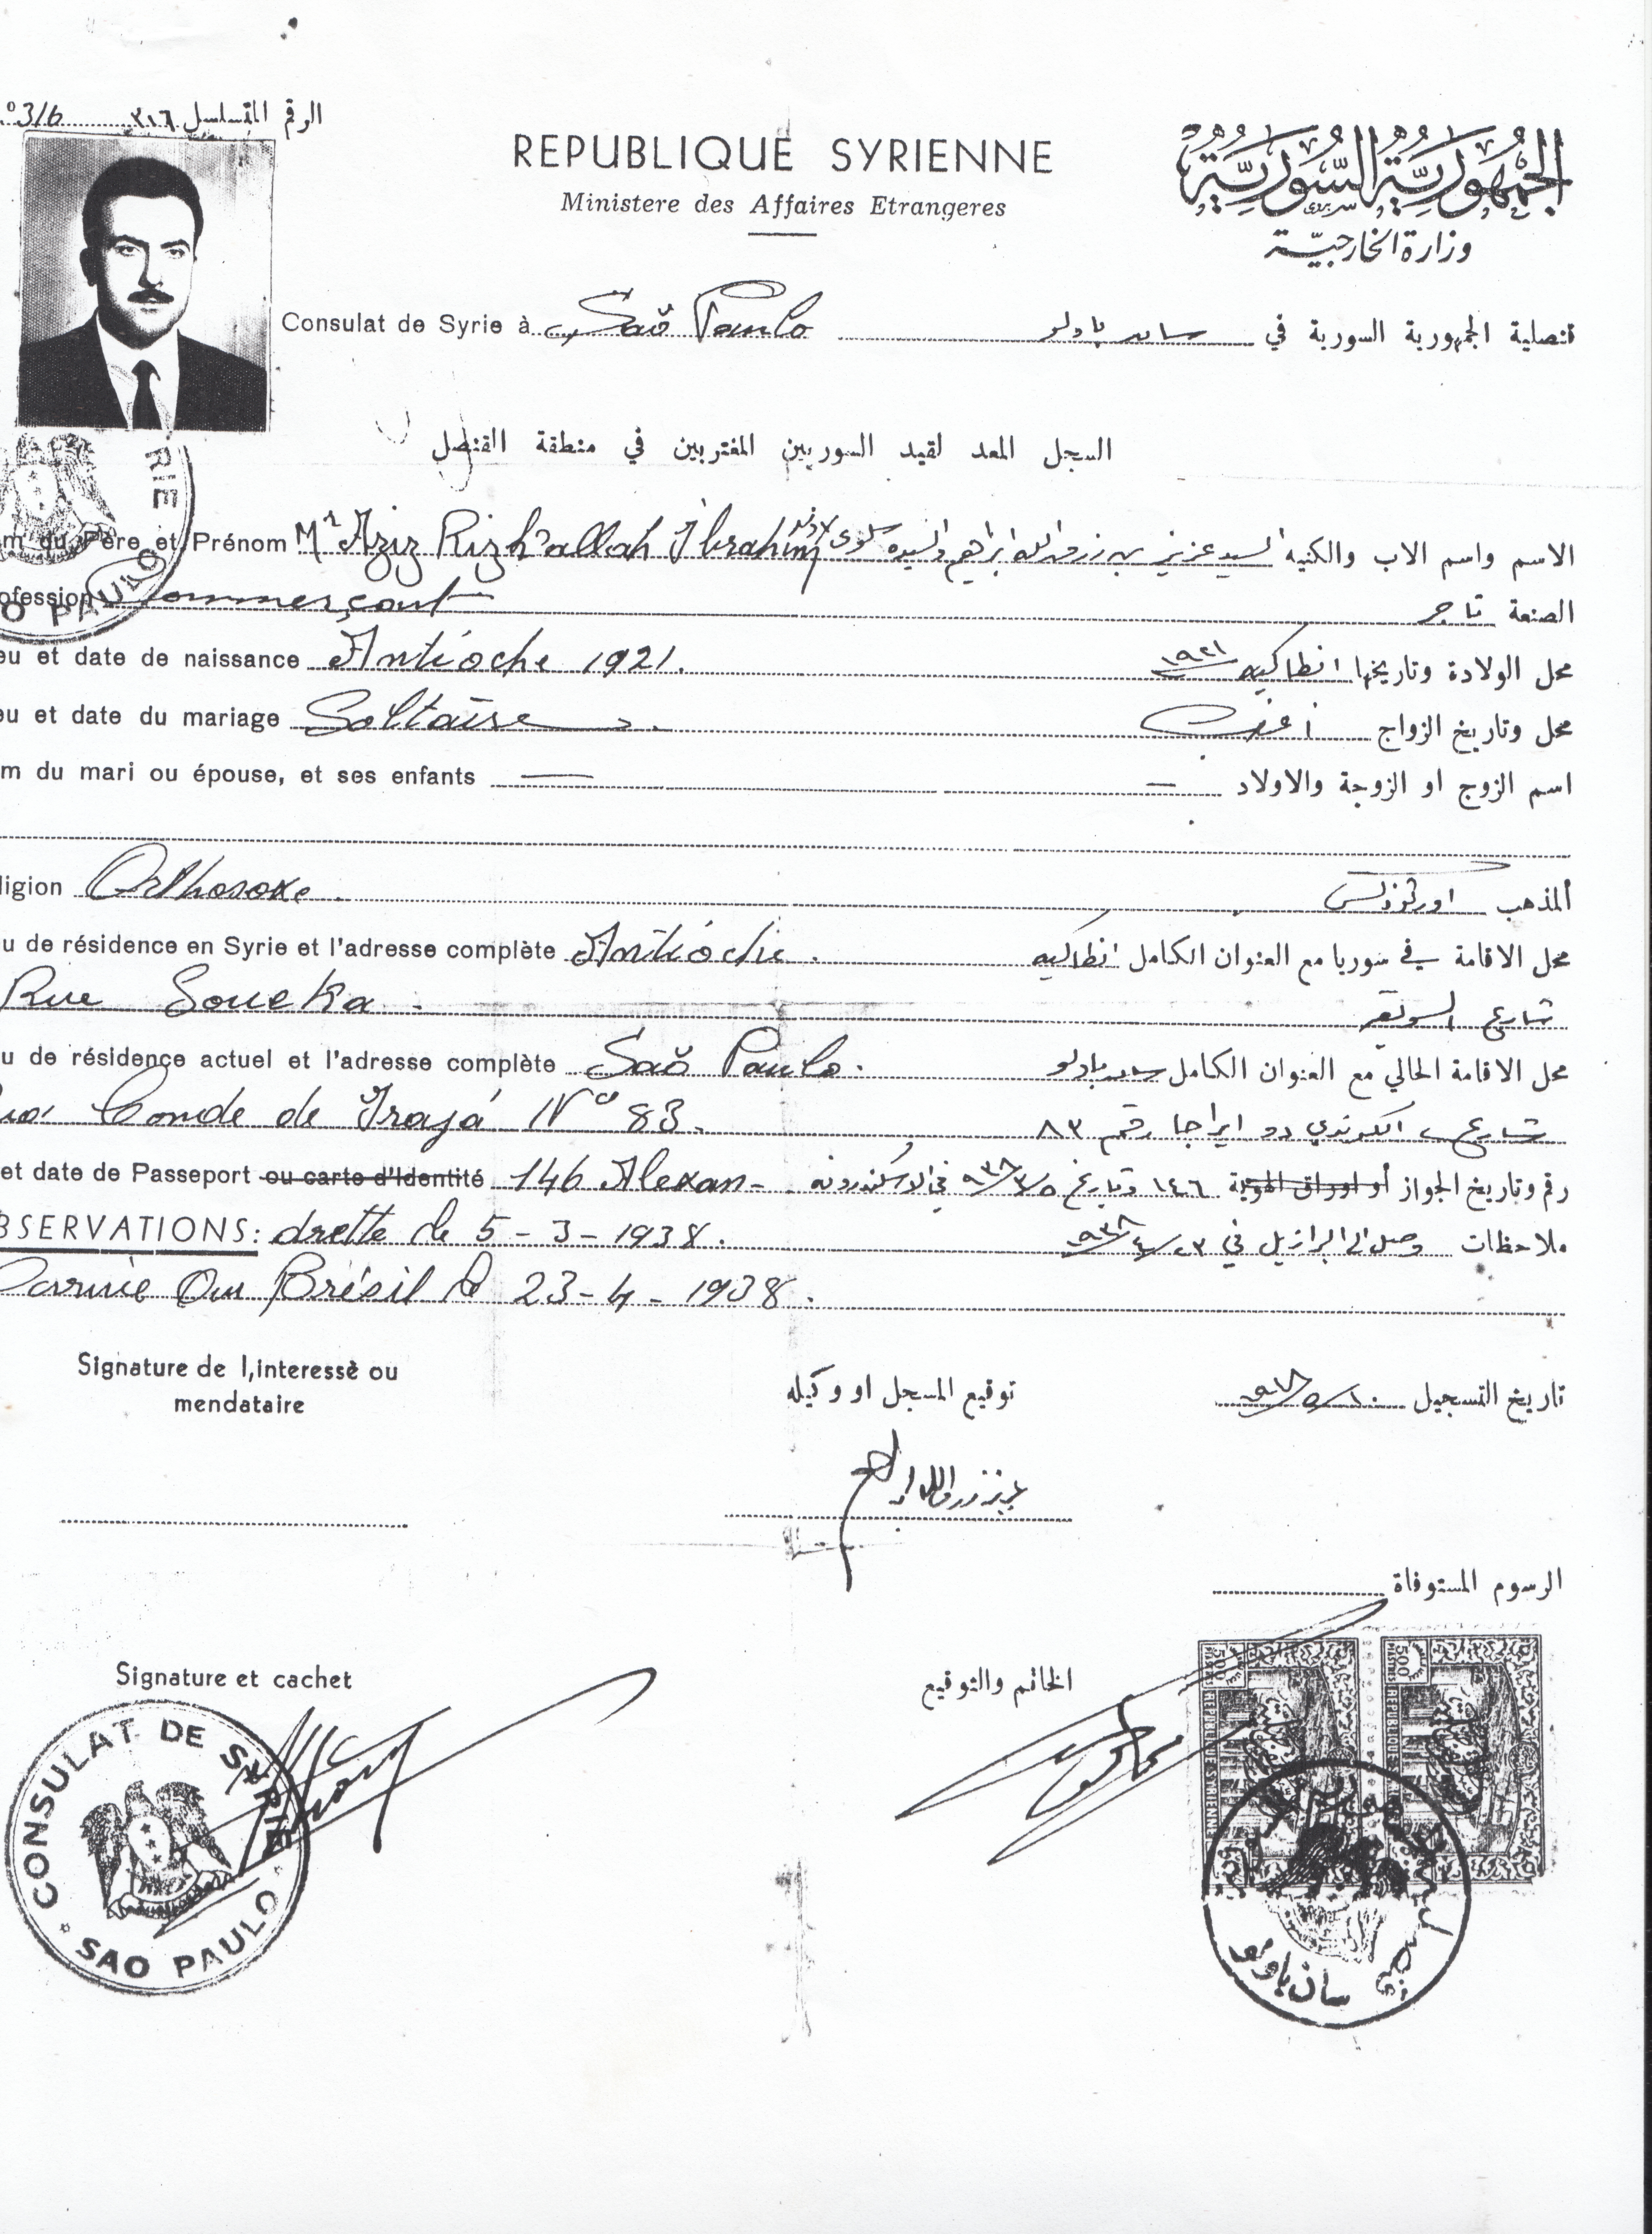 º 316 الرقم المتسلسل ٣١٦
REPUBLIQUE SYRIENNE
الجمهورية السورية
Ministere des Affaires Etrangeres
وزارة الخارجية
Consulat de Syrie à Saõ Paulo
قنصلية الجمهورية السورية في سان باولو
السجل المعد لقيد السوريين المغتربين في منطقة القنصل
m du Père et Prénom Mr Aziz Rizk'allah Ibrahim
الاسم واسم الاب والكنيه السيد عزيز بن رزق الله ابراهيم والسيده سلوى
ofession Commerçant
الصنعة تاجر
eu et date de naissance Antioche 1921.
محل الولادة وتاريخها انطاكيه ١٩٢١
eu et date du mariage Soltaire
محل وتاريخ الزواج أعزب
m du mari ou épouse, et ses enfants —
اسم الزوج او الزوجة والاولاد —
ligion Orthosoxe.
المذهب اورثوذكس
u de résidence en Syrie et l'adresse complète Antioche.
محل الاقامة في سوريا مع العنوان الكامل انطاكيه
Rue Soueka.
شارع السويقه
u de résidence actuel et l'adresse complète Saõ Paulo.
محل الاقامة الحالي مع العنوان الكامل سان باولو
Conde de Irajá Nº 83.
شارع الكوندي دو ايراجا رقم ٨٣
et date de Passeport ou carte d'Identité 146 Alexan-
رقم وتاريخ الجواز أو اوراق الهوية ١٤٦ وتاريخ ٥/٣/٩٣٨ في الاسكندرونه
BSERVATIONS: drette le 5-3-1938.
ملاحظات وصل الى البرازيل في ٢٣/٤/٩٣٨
Darrivie Ou Brésil le 23-4-1938.
Signature de l,interessè ou
mendataire
توقيع المسجل او وكيله
تاريخ التسجيل
عزيز رزق الله ابراهيم
الرسوم المستوفاة
Signature et cachet
الخاتم والتوقيع
CONSULAT DE SYRIE
SAO PAULO
500 PIASTRES REPUBLIQUE SYRIENNE
500 PIASTRES REPUBLIQUE SYRIENNE
سان باولو
RIE
O PAULO